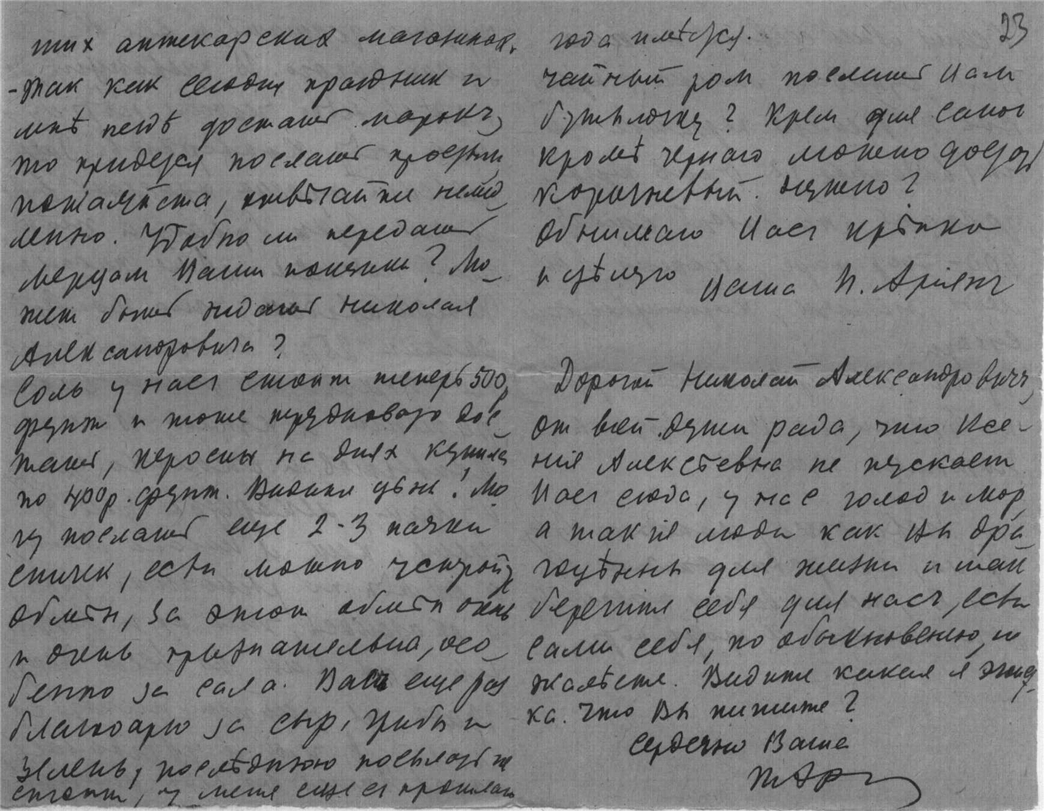 ших аптекарских магазинах.
-Так как сегодня праздник и
мнѣ негдѣ достать марокъ,
то придется послать простым
пожалуйста, отвѣчайте немед
ленно. Удобно ли передавать
мерцам Ваши
жет быть Николая
Александровича?
Соль у насъ стоит теперь 500
фунт и тоже трудновато дос-
тать, керосин на днях купила
по 400 р. фунт. Видите цѣны! Мо
гу послать еще 2-3 пачки
спичек, если можно устроить
обмѣн, за этот обмѣн очень
и очень признательна, осо-
бенно за сало. Вас еще раз
благодарю за сыр, грибы и
зелень, послѣднюю посылать не
стоит, у меня еще съ прошлаго
23
года имѣется.
чайный ром послать Вам
бутылочку? Крем для сапог
кромѣ чернаго можно достать
коричневый. Нужно?
Обнимаю Васъ крѣпко
и цѣлую Ваша П. Аріянъ
Дорогой Николай Александровичъ,
от всей души рада, что Ксе-
нія Алексѣевна не пускает
Васъ сюда, у нас голод и мор,
а такіе люди как Вы дра
гоцѣнны для жизни и там
берегите себя для насъ, если
сами себя, по обыкновенію, не
жалѣете. Видите какая я жид
ка. Что Вы пишите?
Сердечно Ваша
П Ар